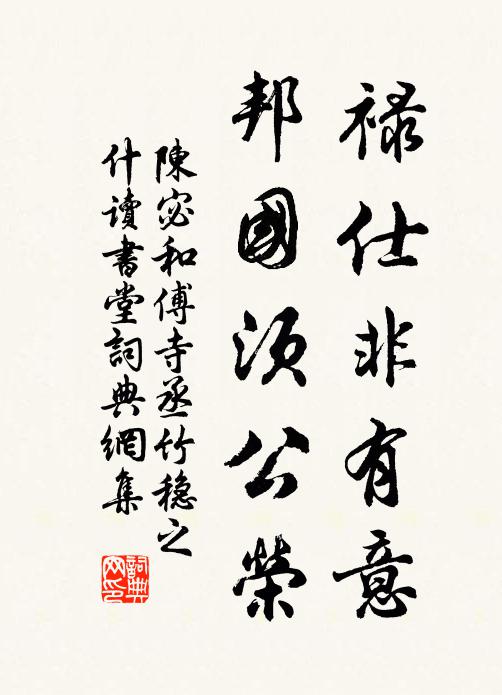 祿仕非有意
邦國須公榮
陳宓和傅寺丞竹穩之
什讀書堂詞典網集
詞典
網印